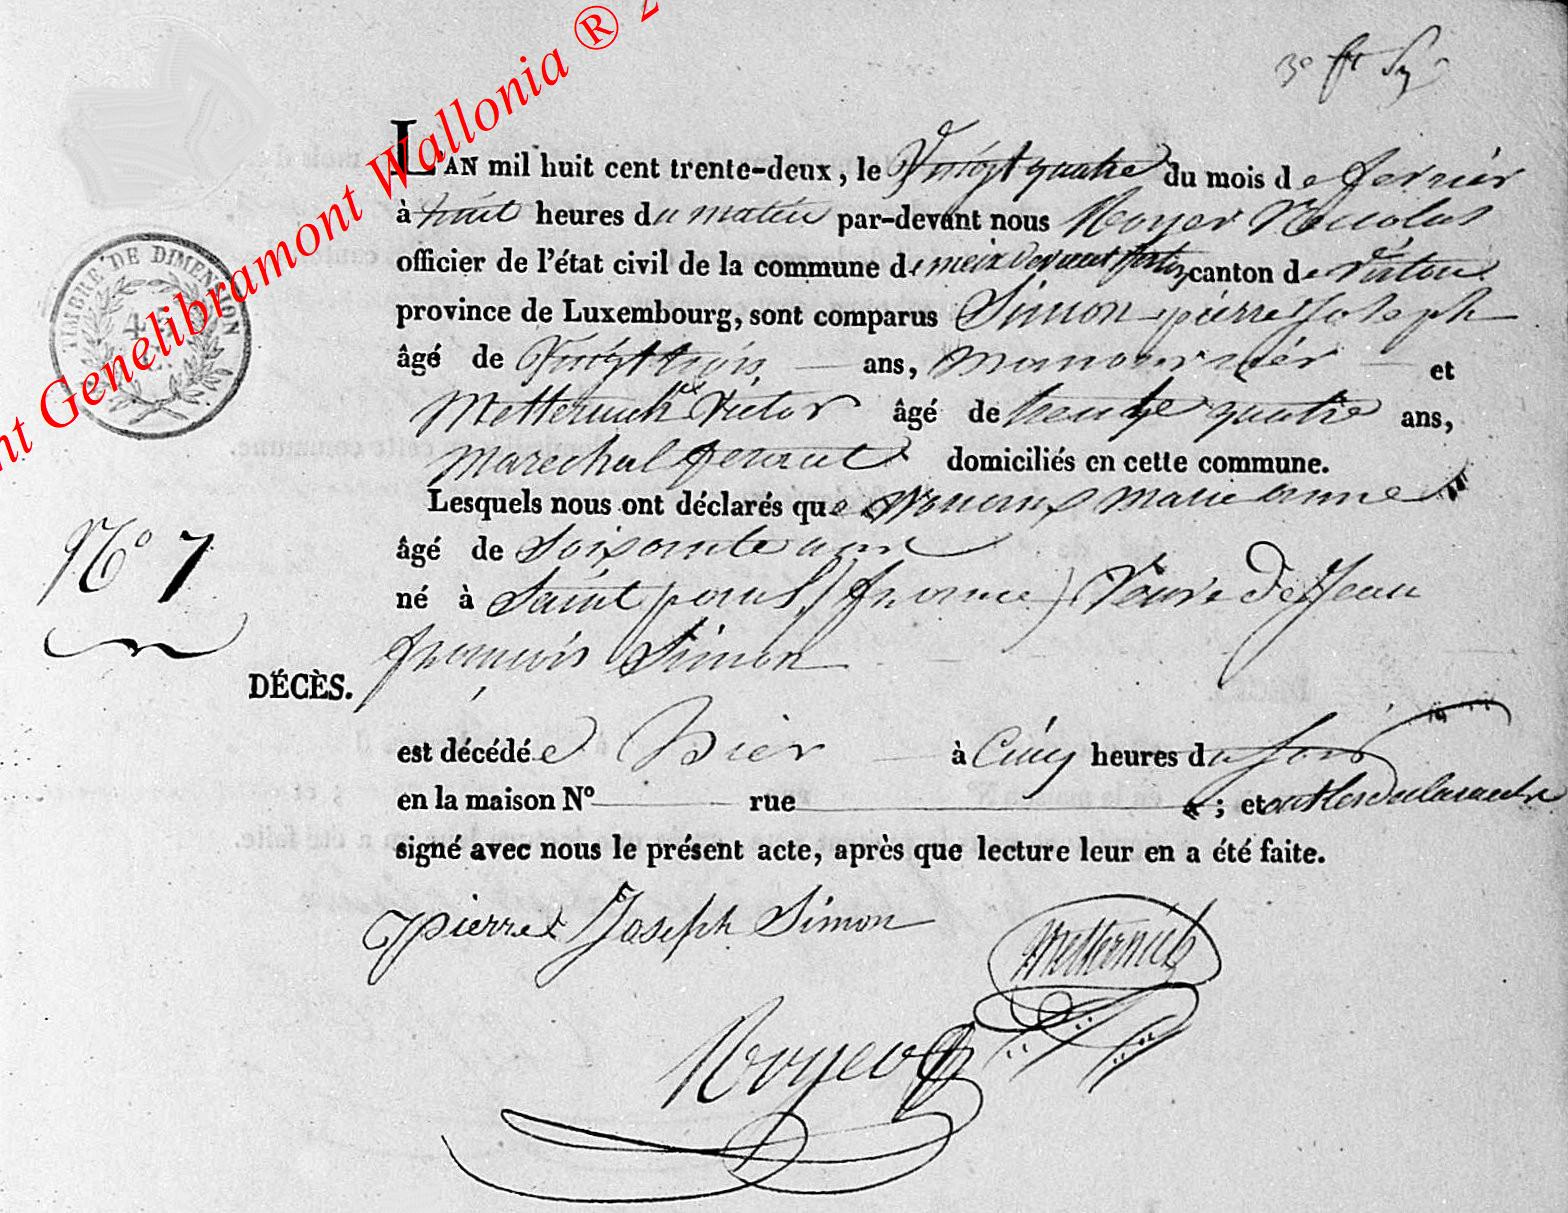 3e ft Sy
L'AN mil huit cent trente-deux, le Vingt quatre du mois de fevrier
à huit heures du matin par-devant nous Noyer Nicolas
officier de l'état civil de la commune de meix devant Virton canton de Virton
province de Luxembourg, sont comparus Simon pierre Joseph
âgé de Vingt trois ans, manouvrier et
Metternich Victor âgé de trente quatre ans,
marechal ferrant domiciliés en cette commune.
Lesquels nous ont déclarés que marie anne
âgé de Soixante un
né à Saint pancré (france) Veuve de Jean
françois Simon
est décédée hier à Cinq heures du soir
en la maison No rue ; et ont les declarants
signé avec nous le présent acte, après que lecture leur en a été faite.
TIMBRE DE DIMENSION
45 C.
No 7
DÉCÈS.
Pierre Joseph Simon
Metternich
Noyer
nt Genelibramont Wallonia ® 2